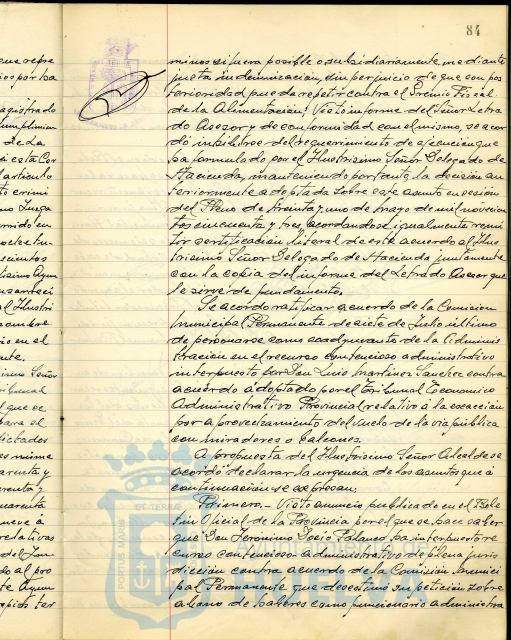 84
minos si fuera posible o subsidiariamente mediante
justa indemnización, sin perjuicio de que con pos
terioridad pueda repetir contra el Gremio Fiscal
de la Alimentación! Visto informe del Señor Letra
do Asesor y de conformidad con el mismo, se acor
do inhibirse del requerimiento de ejecución que
ha formulado por el Ilustrisimo Señor Delegado de
Hacienda, manteniendo por tanto, la decision an
teriormente adoptada sobre este asunto en sesión
del Pleno de treinta y uno de mayo de mil novecien
tos cincuenta y tres, acordandose, igualmente remi
tir certificación literal de este acuerdo al Ilus
trisimo Señor Delegado de Hacienda juntamente
con la copia del informe del Letrado Asesor que
le sirve de fundamento.
Se acordo ratificar acuerdo de la Comision
Municipal Permanente de siete de Julio ultimo
de personarse como coadyuvante de la Adminis
tración en el recurso contencioso administrativo
interpuesto por Don Luis Martinez Sanchez contra
acuerdo adoptado por el Tribunal Economico
Administrativo Provincial relativo á la exacción
por aprovechamiento del vuelo de la via publica
con miradores o balcones.
A propuesta del Ilustrisimo Señor Alcalde se
acordó declarar la urgencia de los asuntos que á
continuación se expresan.
Primero.- Visto anuncio publicado en el Bole
tin Oficial de la Provincia por el que se hace saber
que Don Jeronimo Palanco ha interpuesto re
curso contencioso-administrativo de plena juris
dicción contra acuerdo de la Comisión Munici
pal Permanente que desestimó su petición sobre
abono de haberes como funcionario administra